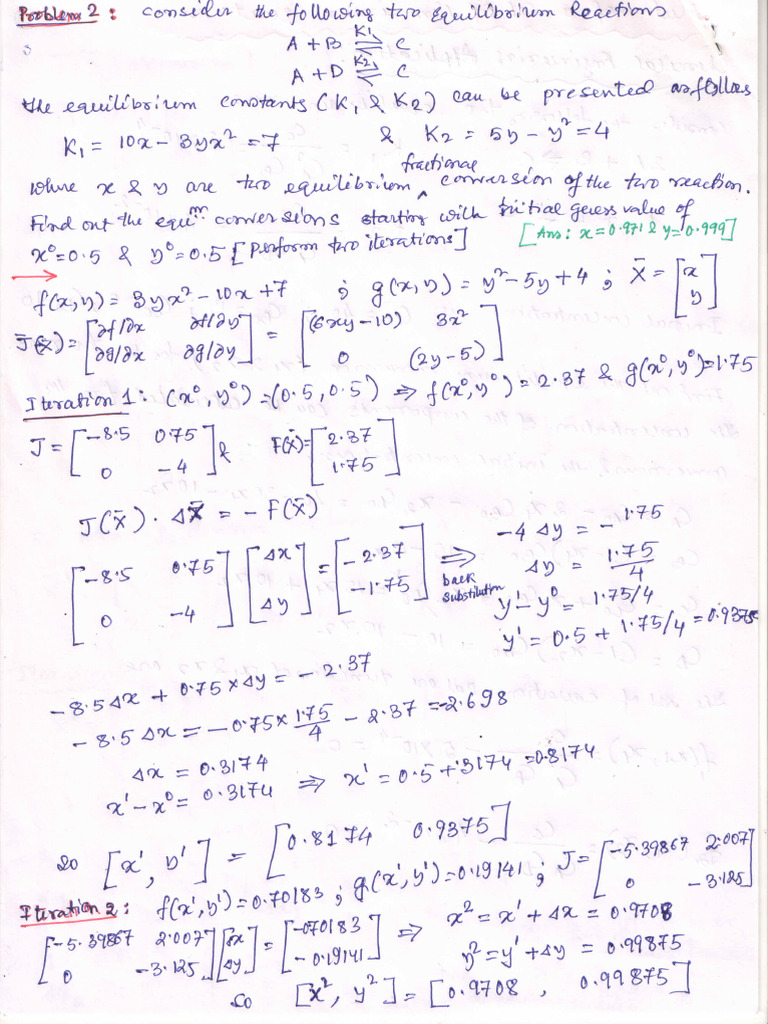 Problem 2 : consider the following two equilibrium Reactions
A + B K1 ⇌ C
A + D K2 ⇌ C
the equilibrium constants (K1 & K2) can be presented as follows
K1 = 10x − 3yx² = 7 & K2 = 5y − y² = 4
where x & y are two equilibrium ^ fractional conversion of the two reaction.
Find out the equm conversions starting with initial guess value of
x⁰=0.5 & y⁰=0.5 [Perform two iterations] [Ans: x=0.971 & y=0.999]
→ f(x,y) = 3yx² − 10x + 7 ; g(x,y) = y² − 5y + 4 ; X̄ = [x y]
J(x̄) = [∂f/∂x ∂f/∂y ∂g/∂x ∂g/∂y] = [(6xy−10) 3x² 0 (2y−5)]
Iteration 1: (x⁰,y⁰) = (0.5, 0.5) ⇒ f(x⁰,y⁰) = 2.37 & g(x⁰,y⁰) = 1.75
J = [−8.5 0.75 0 −4] & F(x̄) = [2.37 1.75]
J(X̄) · ΔX̄ = − F(X̄)
[−8.5 0.75 0 −4] [Δx Δy] = [−2.37 −1.75] ⇒ back substitution
−4 Δy = −1.75
Δy = 1.75/4
y¹ − y⁰ = 1.75/4
y¹ = 0.5 + 1.75/4 = 0.9375
−8.5Δx + 0.75×Δy = −2.37
−8.5 Δx = −0.75× 1.75/4 − 2.37 = −2.698
Δx = 0.3174
x¹ − x⁰ = 0.3174 ⇒ x¹ = 0.5 + .3174 = 0.8174
so [x¹, y¹] = [0.8174 0.9375]
Iteration 2: f(x¹,y¹) = 0.70183 ; g(x¹,y¹) = 0.19141 ; J = [−5.39867 2.007 0 −3.125]
[−5.39867 2.007 0 −3.125] [Δx Δy] = [−070183 −0.19141] ⇒ x² = x¹ + Δx = 0.9708
y² = y¹ + Δy = 0.99875
so [x², y²] = [0.9708 , 0.99875]